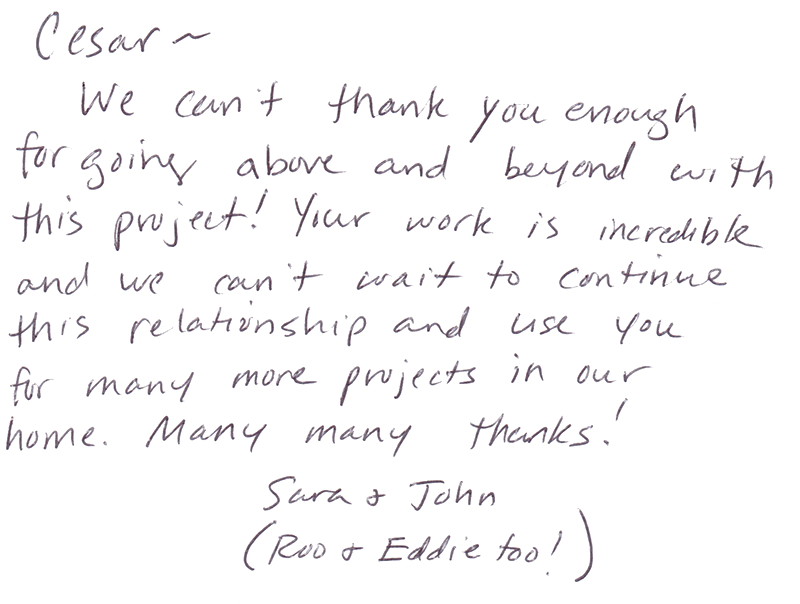 Cesar ~
We can't thank you enough
for going above and beyond with
this project! Your work is incredible
and we can't wait to continue
this relationship and use you
for many more projects in our
home. Many many thanks!
Sara & John
(Roo & Eddie too!)